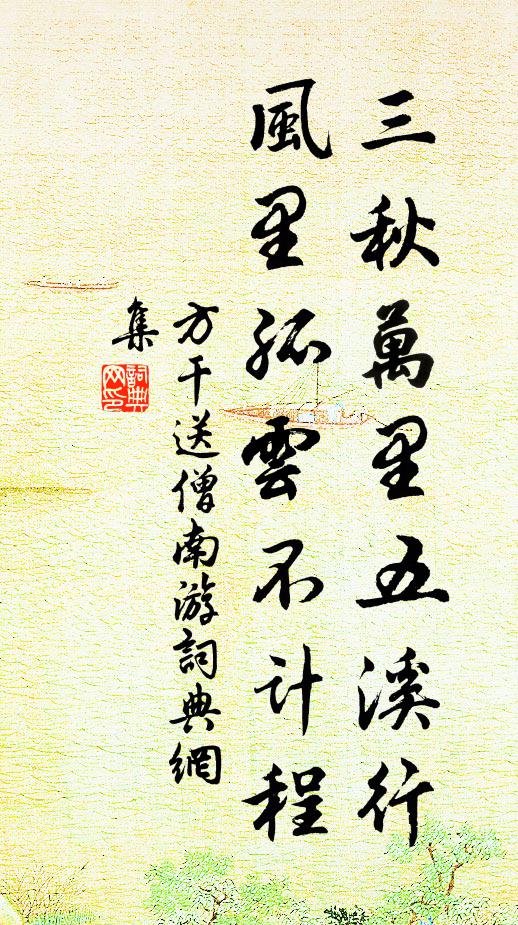 三秋萬里五溪行
風里孤雲不计程
方干送僧南游詞典網
集
詞典
网印